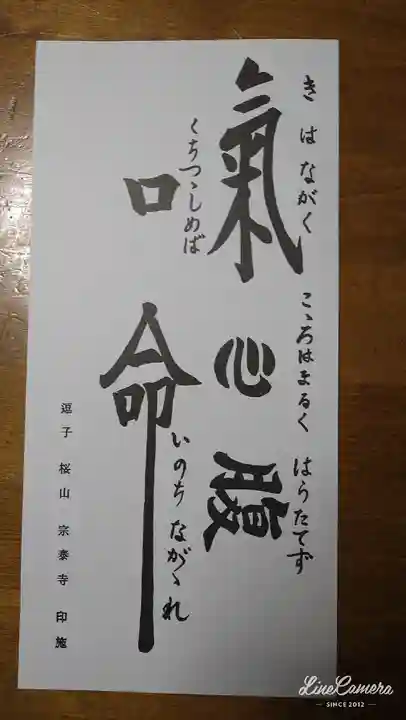 きはながく こゝろはまるく はらたてず
氣心腹
くちつゝしめば
口命
いのちながゝれ
逗子 桜山 宗泰寺 印施
LineCamera
SINCE 2012